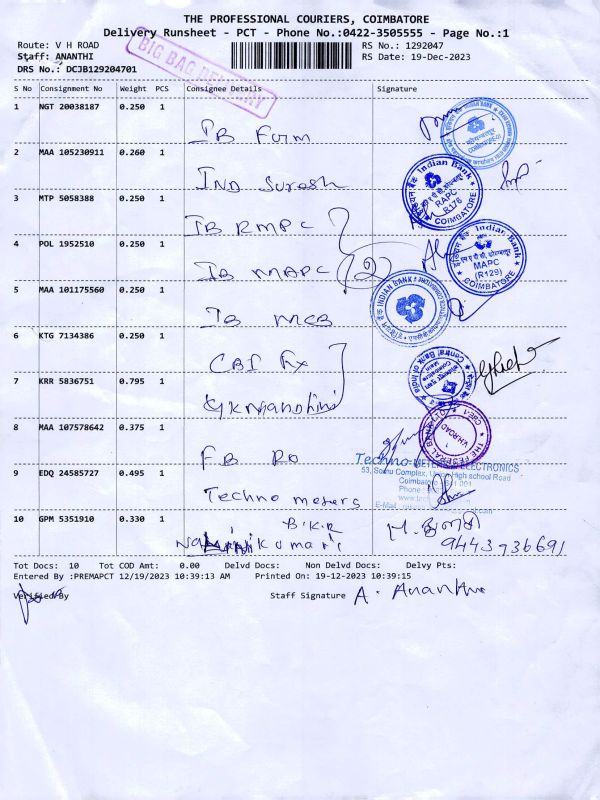 THE PROFESSIONAL COURIERS, COIMBATORE
Delivery Runsheet - PCT - Phone No.:0422-3505555 - Page No.:1
Route: V H ROAD
RS No.: 1292047
Staff: ANANTHI
RS Date: 19-Dec-2023
DRS No.: DCJB129204701
BIG BAG DELIVERY
S No Consignment No Weight PCS Consignee Details Signature
1 NGT 20038187 0.250 1
IB Furm
2 MAA 105230911 0.260 1
IND Suresh
Indian Bank
RAPC
R176
COIMBATORE
3 MTP 5058388 0.250 1
IB RMPC
4 POL 1952510 0.250 1
IB MAPC (2)
Indian Bank
MAPC
(R129)
COIMBATORE
5 MAA 101175560 0.250 1
IB MCB
INDIAN BANK
6 KTG 7134386 0.250 1
CBI Fx
Central Bank of India
7 KRR 5836751 0.795 1
8 MAA 107578642 0.375 1
FB RO
THE FEDERAL BANK LTD.
V.H.ROAD
CBE-1
9 EDQ 24585727 0.495 1
Techno meters
Techno METERS & ELECTRONICS
53, Somu Complex, Union High school Road
Coimbatore - 641 001
Phone
E-Mail
10 GPM 5351910 0.330 1
B.K.R
9443736691
Tot Docs: 10 Tot COD Amt: 0.00 Delvd Docs: Non Delvd Docs: Delvy Pts:
Entered By :PREMAPCT 12/19/2023 10:39:13 AM Printed On: 19-12-2023 10:39:15
Verified By
Staff Signature A. Ananthi